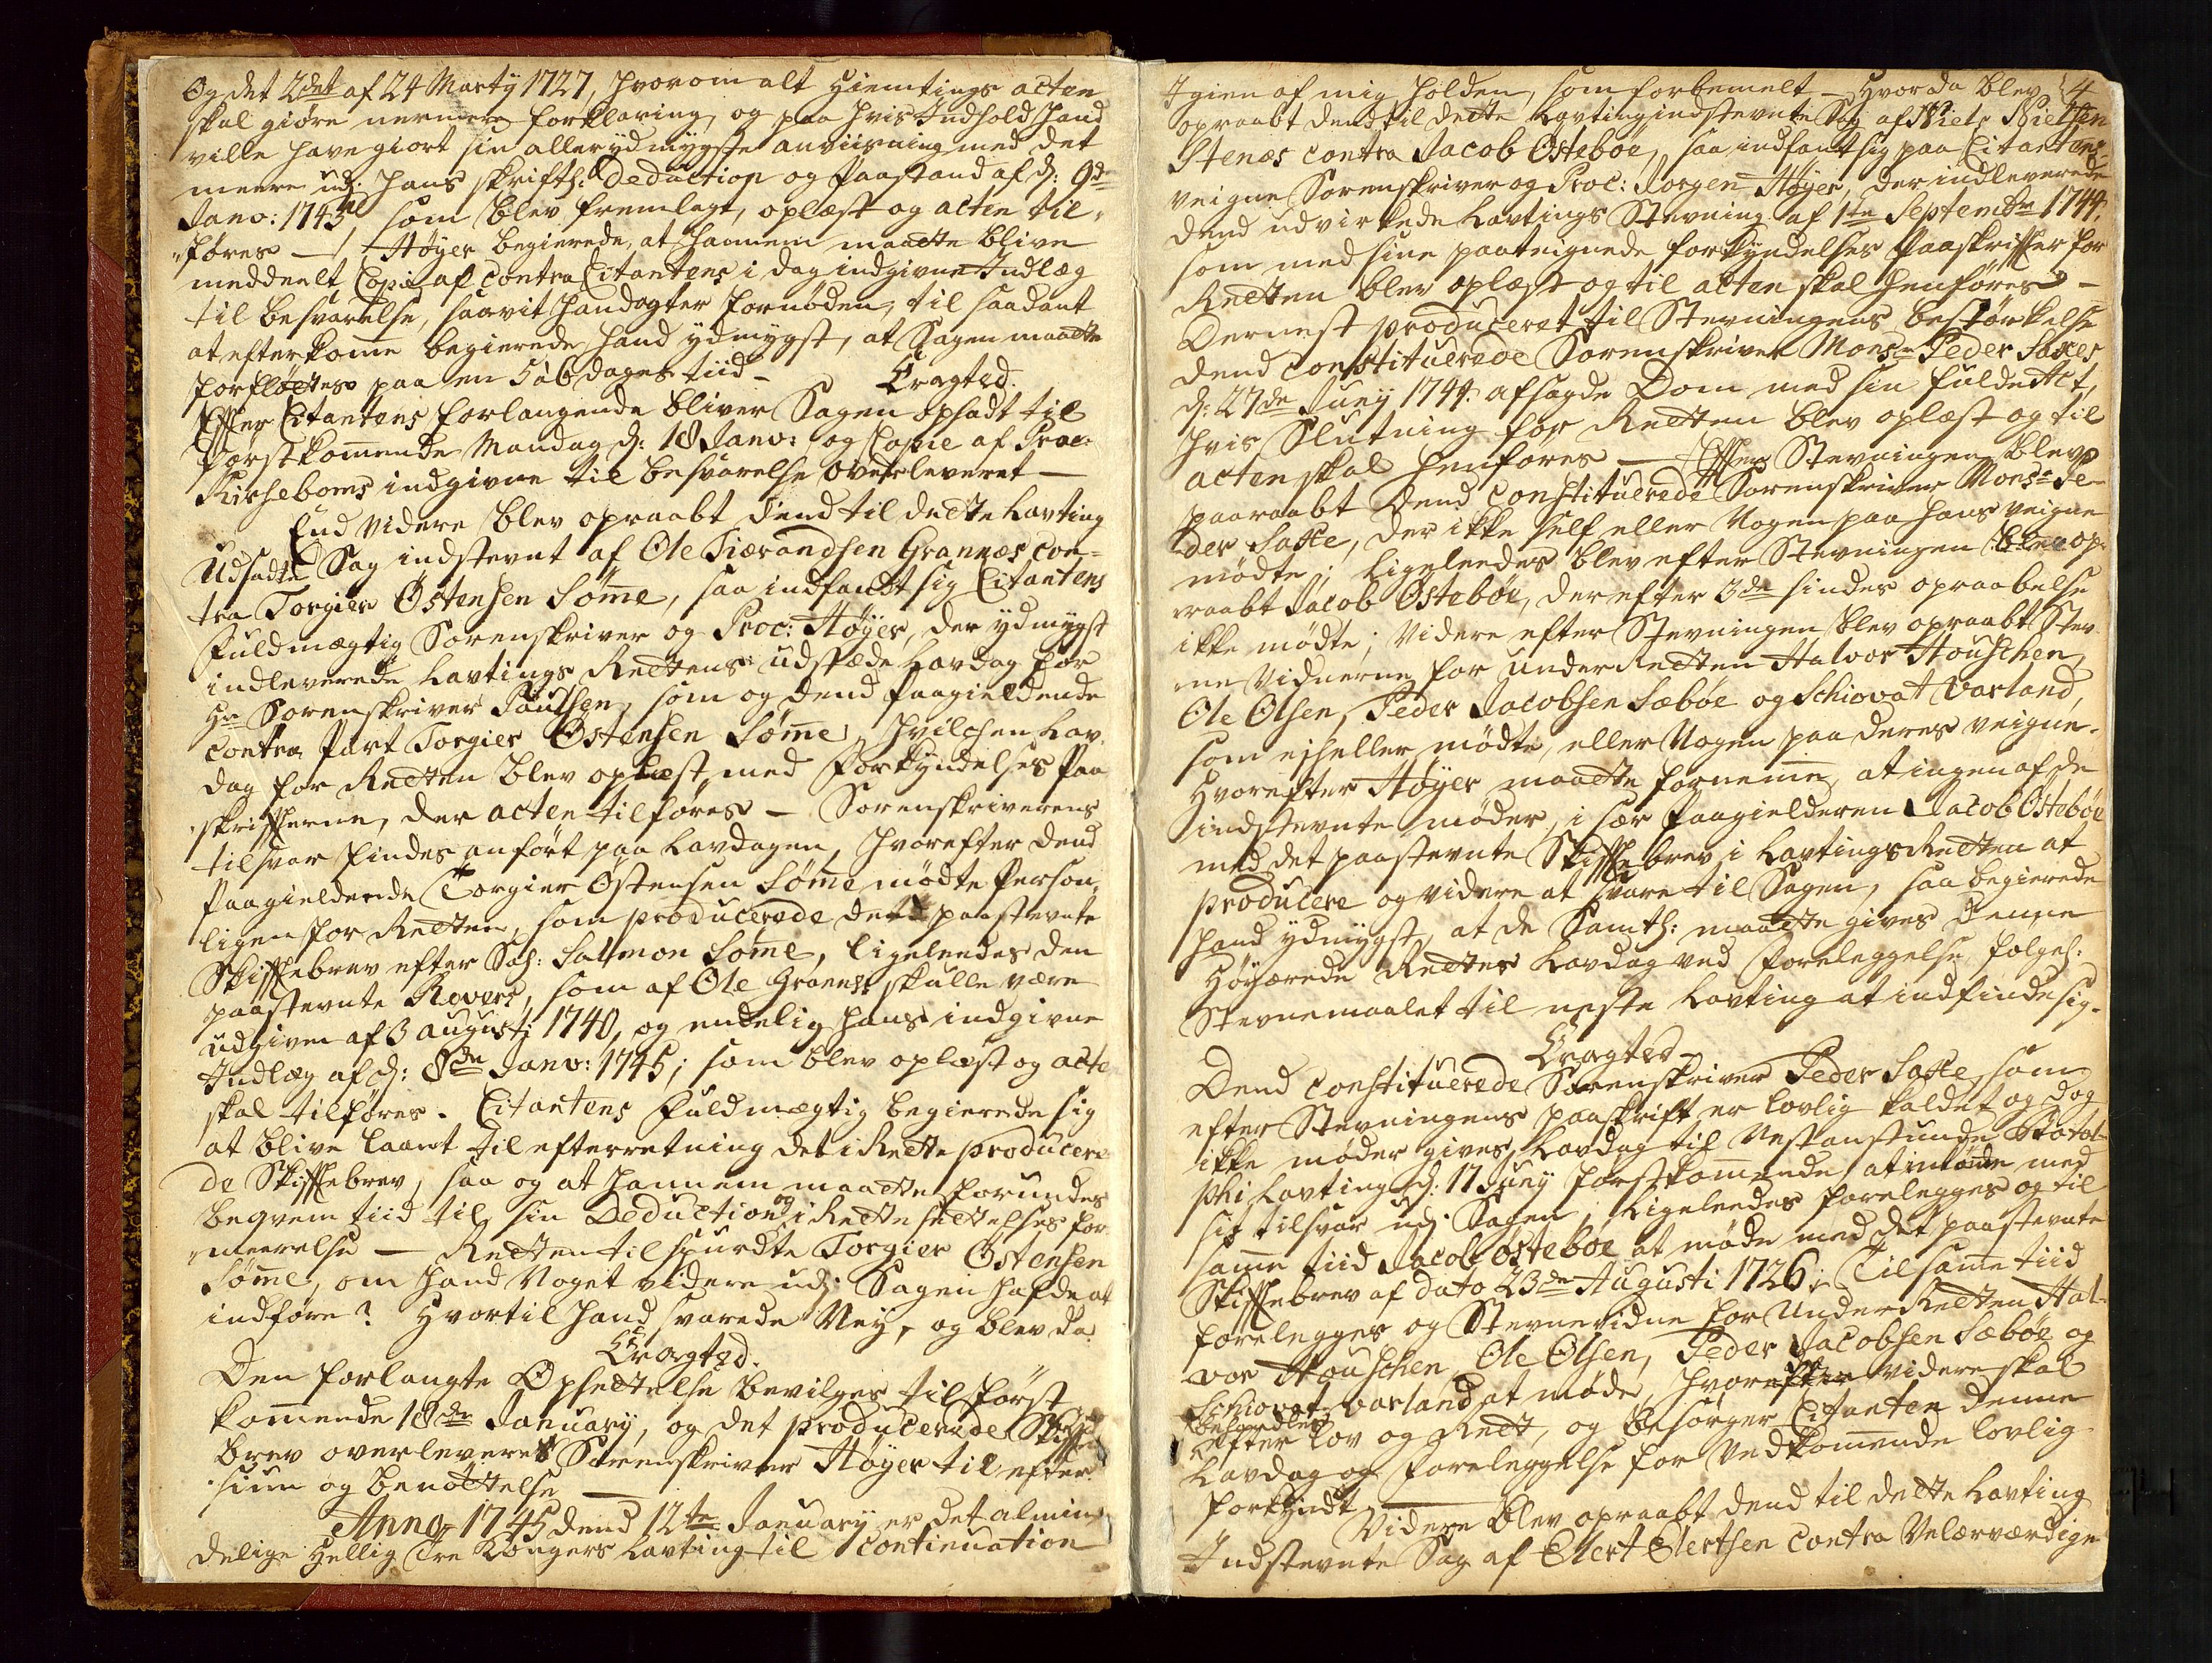 Og det 2det af 24 Marty 1727, hvorom alt hiemtings acten
skal giøre nermere forklaring, og paa hvis Indhold hand
ville have giort sin allerydmygste anviisning med det
meere udj hans skriftl: Deduction og Paastand af d: 9de
Janv: 1745, som blev fremlagt, oplæst og acten til-
føres — Høyer begierede, at hannem maatte blive
meddeelt Copie af Contra Citantens i dag indgivne Indlæg
til besvarelse, saavit hand agter fornøden, til saadant
at efterkomme begierede hand ydmygst, at Sagen maatte
forfløttes paa en 5 á 6 dages tiid —
Eragted.
Effter Citantens forlangende bliver Sagen opsadt til
førstkommende Mandag d: 18 Janv: og Copie af Proc:
Kirseboms indgivne til besvarelse overleveret —
End videre blev opraabt dend til dette Lavting
Udsadte Sag indstevnt af Ole Tiærandsen Grannæs con-
tra Torgier Østensen Sømme, saa indfandt sig Citantens
Fuldmægtig Sorenskriver og Proc: Høyer, der ydmygst
indleverede Lavtings Rettens udstæde Lavdag for
Hr Sorenskriver Paulsen, som og dend Paagieldende
Contra Part Torgier Østensen Sømme, hvilchen Lav-
dag for Retten blev oplæst, med Forkyndelses Paa-
skriffterne, der acten tilføres — Sorenskriverens
tilsvar findes anført paa Lavdagen, hvorefter dend
Paagieldende Torgier Østensen Sømme mødte Person-
ligen for Retten, som producerede det paastevnte
Skiffebrev efter Sal: Salmon Sømme, ligeleedes den
paastevnte Revers, som af Ole Grannes skulle være
udgiven af 3 augusti 1740, og endelig hans indgivne
Indlæg af d: 8de Janv: 1745; som blev oplæst og acten
skal tilføres. Citantens Fuldmægtig begierede sig
at blive laant til efterretning det i Rette producere-
de Skiffebrev, saa og at hannem maatte forundes
beqvem tiid til sin Deduction og i Rettesettelses for-
meerelse — Retten tilspurdte Torgier Østensen
Sømme, om hand Noget videre udj Sagen hafde at
indføre? Hvortil hand svarede Ney, og blev da
Eragted.
Den forlangte Opsettelse bevilges til først-
komende 18de January, og det producerede Skiffte
brev overleveret Sorenskriver Høyer til efter-
siun og benøttelse —
Anno 1745 dend 12te January er det almin-
delige Hellig Tre Kongers Lavting til Continuation
4
Igien af mig holden, som forbemelt — Hvorda blev
opraabt dend til dette Lavting indstevnte Sag af Niels Nielsen
Stenæs contra Jacob Østebøe, saa indfant sig paa Citantens
veigne Sorenskriver og Proc: Jørgen Høyer, der indleverede
dend udvirkede Lavtings Stevning af 1te Septembr 1744.
som med sine paateignede forkyndelses Paaskriffter for
Retten blev oplæst og til acten skal henføres —
Dernest produceret til Stevningens bestørkelse
dend Constituerede Sorenskriver Monsr Peder Saxes
d: 27de Juny 1744. afsagde Dom med sin fulde Act,
hvis Slutning for Retten blev oplæst og til
acten skal henføres — Effter Stevningen blev
paaraabt Dend Constituerede Sorenskriver Monsr Pe-
der Saxe, der ikke self eller Nogen paa hans veigne
mødte; Ligeleedes blev efter Stevningen blev op-
raabt Jacob Østebøe, der efter 3de sindes opraabelse
ikke mødte; Videre efter Stevningen blev opraabt Stev-
ne Vidnerne for Under Retten Halvor Houschen,
Ole Olsen, Peder Jacobsen Sæbøe og Schiovat Varland,
som ej heller mødte, eller Nogen paa deres veigne.
Hvorefter Høyer maatte fornemme, at ingen af de
indstevnte møder, i sær Paagielderen Jacob Østebøe
med det paastevnte Skiffebrev i Lavtings Retten at
producere og videre at svare til Sagen, saa begierede
hand ydmygst, at de Samtl: maatte gives denne
Høyærede Rettes Lavdag ved foreleggelse følgel:
Stevnemaalet til neste Lavting at indfinde sig.
Eragted
Dend Constituerede Sorenskriver Peder Saxe, som
efter Stevningens paaskrift er lovlig kaldet og dog
ikke møder gives Lavdag til Nestanstunde Botol-
phi Lavting d: 17 Juny førstkommende at møde med
sit tilsvar udj Sagen, Ligeleedes forelegges og til
samme tiid Jacob Østebøe at møde med det paastevnte
Skiffebrev af dato 23de Augusti 1726; Til samme tiid
forelegges og Stevnevidne for Under Retten Hal-
vor Houschen, Ole Olsen, Peder Jacobsen Sæbøe og
Schiovat Varland at møde, hvor da videre skal
behandles
efter lov og Rett, og besørger Citanten denne
Lavdag og foreleggelse for Vedkommende lovlig
forkyndt —
Videre blev opraabt dend til dette Lavting
Indstevnte Sag af Elert Elertsen contra Velærværdige